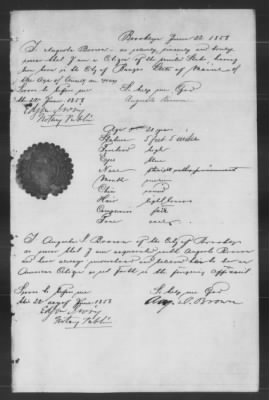 Brooklyn June 22 1858
I Augusta Brown do solemnly, sincerely and truly
swear that I am a Citizen of the United States having
been born in the City of Bangor State of Maine of
the Age of twenty one years
Sworn to before me So help me God
this 22 June 1858 Augusta Brown
Notary Public
Age 21 years
Stature 5 feet 5 inches
Forehead high
Eyes blue
Nose straight
Mouth
Chin round
Hair light brown
Complexion fair
Face oval
I Augustus Brown of the City of Brooklyn
do swear that I am acquainted with Augusta Brown
and have always understood and believed her to be an
American Citizen as set forth in the foregoing affidavit
Sworn to before me So help me God
this 22 day of June 1858 Aug. Brown
Notary Public